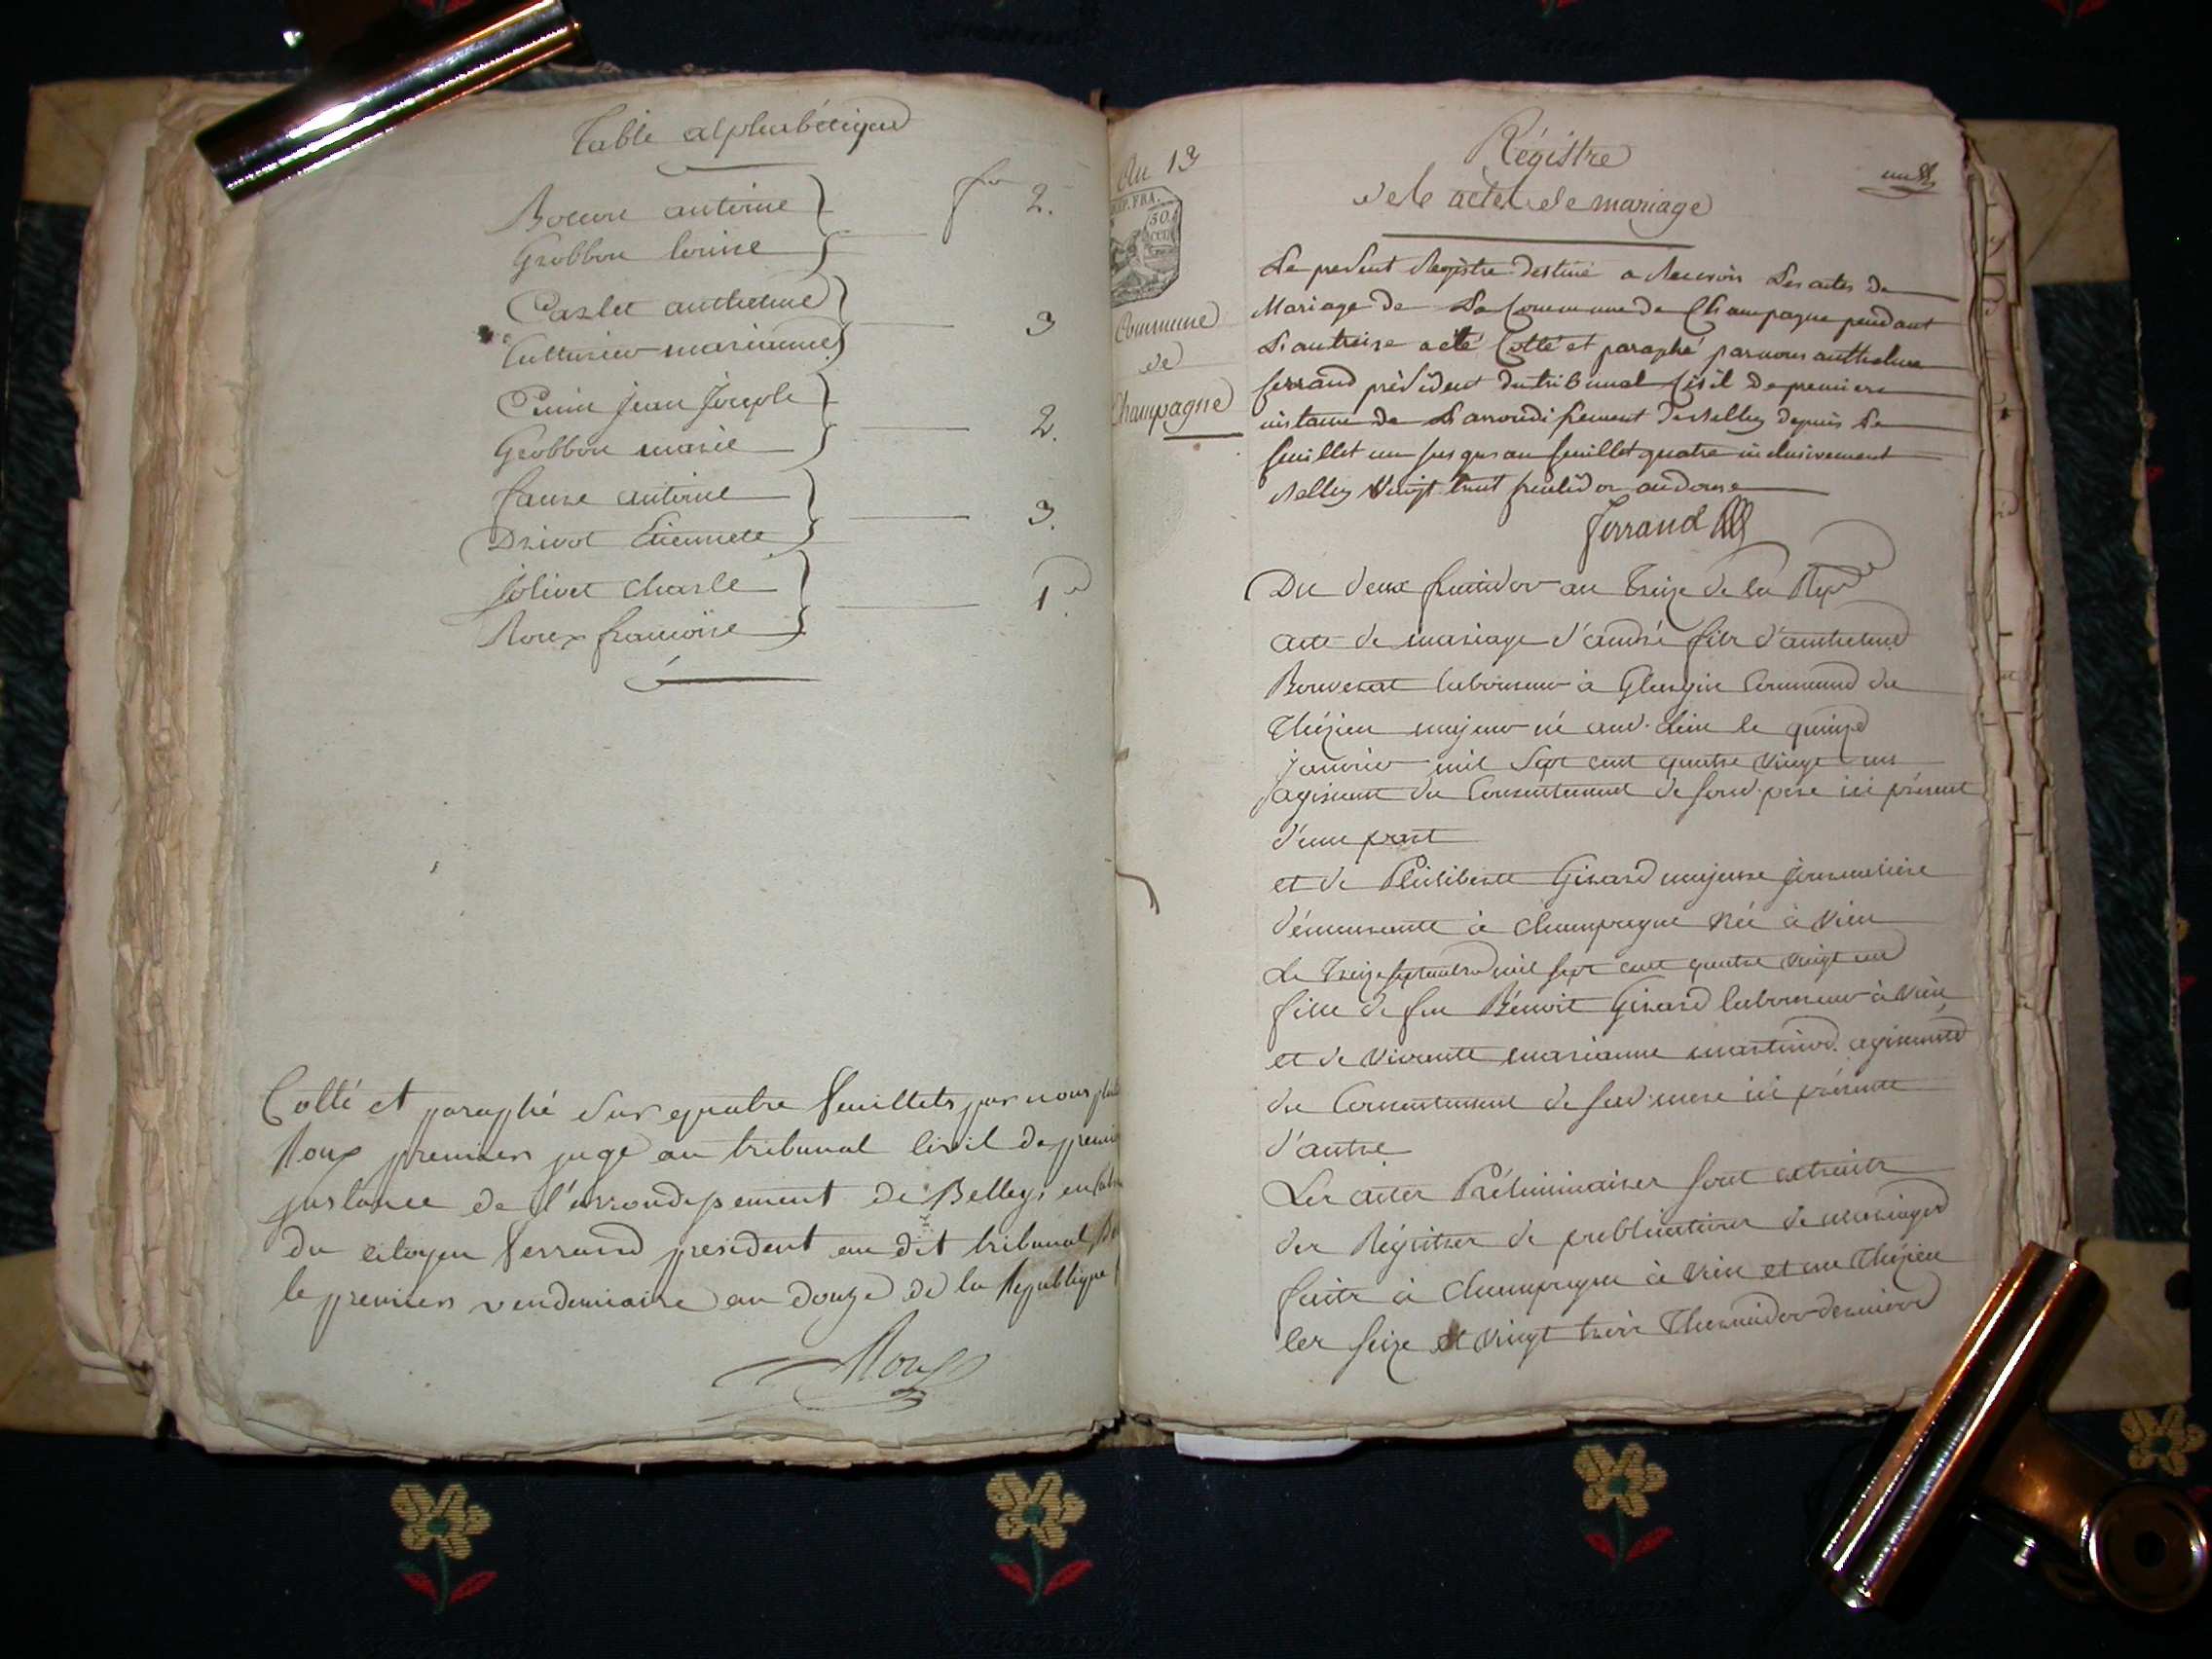 Table alphabétique
antoine fo 2.
Grobbon louise
Carlet anthelme 3
marianne
jean joseph 2.
Grobbon marie
faure antoine 3.
Drivot Etiennete
jolivet charle 1er
Roux françoise
Cotté et paraphé sur quatre feuillets par nous
Roux premier juge au tribunal civil de premi
instance de l'arrondissement de Belley, en
du citoyen ferrand president au dit tribunal
le premier vendemiaire an douze de la Republique
Roux
an 13
REP. FRA.
50
CEN
Commune
de
Champagne
Régistre
des actes de mariage
un
Le present Registre destiné a Recevoir Les actes de
Mariage de La Commune de Champagne pendant
L'an treize a été Cotté et paraphé par nous anthelme
ferrand président du tribunal Civil de premiere
instance de L'arrondissement de Belley depuis Le
feuillet un jusqu'au feuillet quatre inclusivement
Belley Vingt huit fructidor an douze
ferrand
Du deux fructidor an treize de la Repe
acte de mariage d'andré fils d'anthelme
Bouverat laboureur à Commune du
Thézieu majeur né aud. lieu le quinze
janvier mil Sept cent quatre vingt un
agissant du Consentement de sond. pere ici présent
d'une part
et de Philiberte Girard majeure journaliere
démeurante à champagne née à Vieu
Le treize septembre mil sept cent quatre vingt un
fille de feu Bénoit Girard laboureur à Vieu
et de vivante marianne agissante
du Consentement de sad. mere ici présente
d'autre
Les actes Préliminaires sont extraits
des Régistres de publications de mariages
faits à Champagne à Vieu et au Thézieu
les seize et vingt trois Thermidor dernier